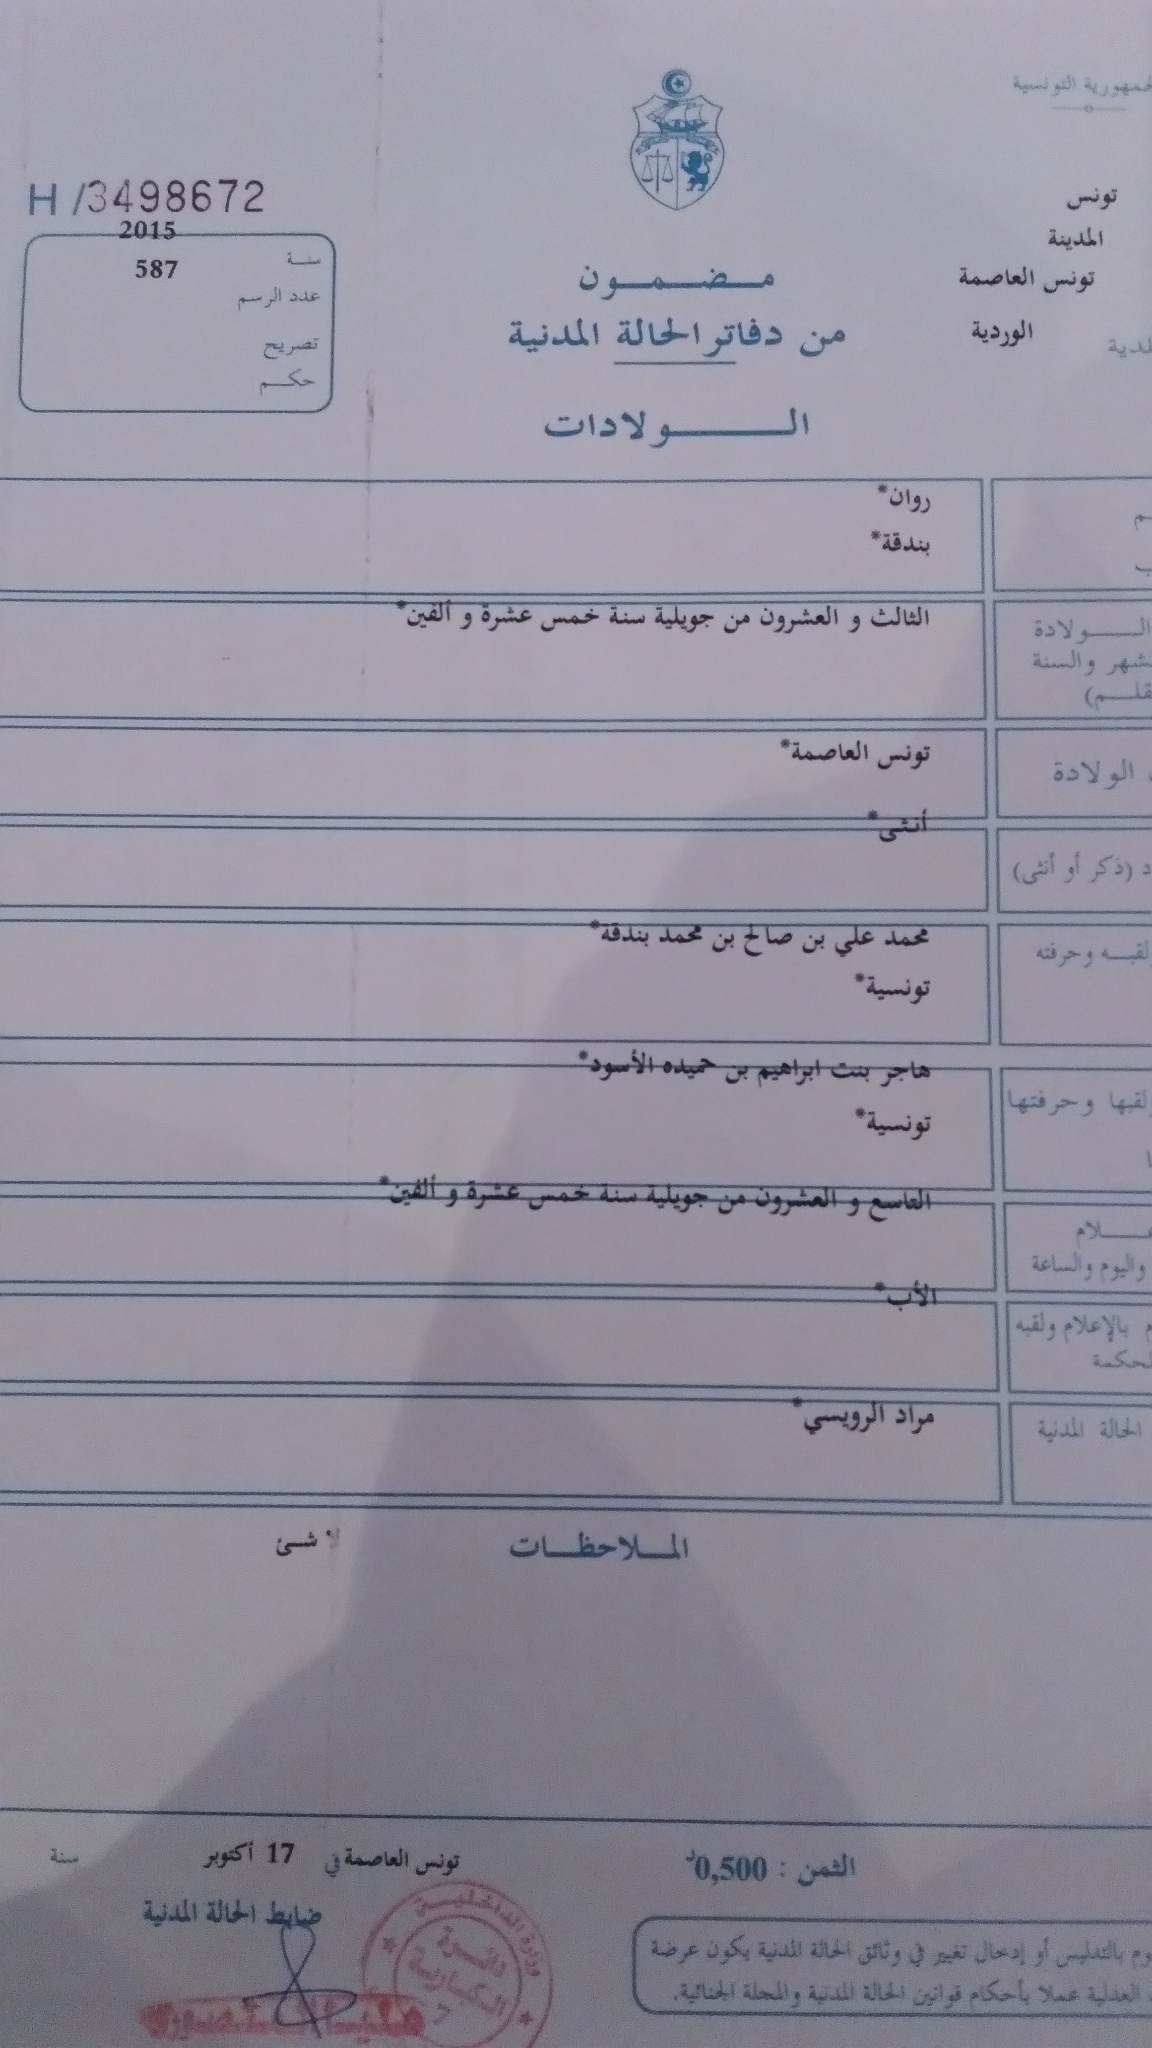 الجمهورية التونسية
H/3498672
تونس
المدينة
تونس العاصمة
الوردية
2015
سنة
587
عدد الرسم
تصريح
حكم
مضمون
من دفاتر الحالة المدنية
الولادات
روان*
بندقة*
الولادة
والسنة
الثالث و العشرون من جويلية سنة خمس عشرة و ألفين*
الولادة
تونس العاصمة*
(ذكر أو أنثى)
أنثى*
وحرفته
محمد علي بن صالح بن محمد بندقة*
تونسية*
وحرفتها
هاجر بنت ابراهيم بن حميده الأسود*
تونسية*
واليوم والساعة
التاسع و العشرون من جويلية سنة خمس عشرة و ألفين*
بالإعلام ولقبه
الأب*
الحالة المدنية
مراد الرويسي*
الملاحظات
لا شئ
الثمن : 0,500د
تونس العاصمة في 17 أكتوبر سنة
ضابط الحالة المدنية
بالتدليس أو إدخال تغيير في وثائق الحالة المدنية يكون عرضة
العدلية عملا بأحكام قوانين الحالة المدنية والمجلة الجنائية.
وزارة الداخلية
دائرة
الكبارية
7